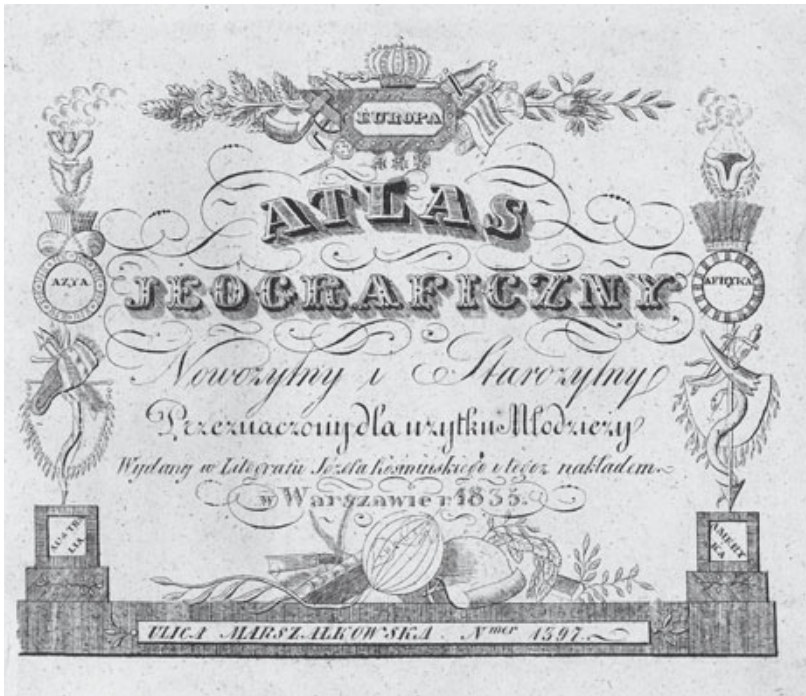 EUROPA
ATLAS
JEOGRAFICZNY
AZYA
AFRYKA
Nowożytny i Starożytny
Przeznaczony dla użytku Młodzieży
Wydany w Litografii Józefa Kośmińskiego i tegoż nakładem
w Warszawie r. 1835.
AUSTRA
LIA
AMERY
KA
ULICA MARSZAŁKOWSKA. Nmer 1397.